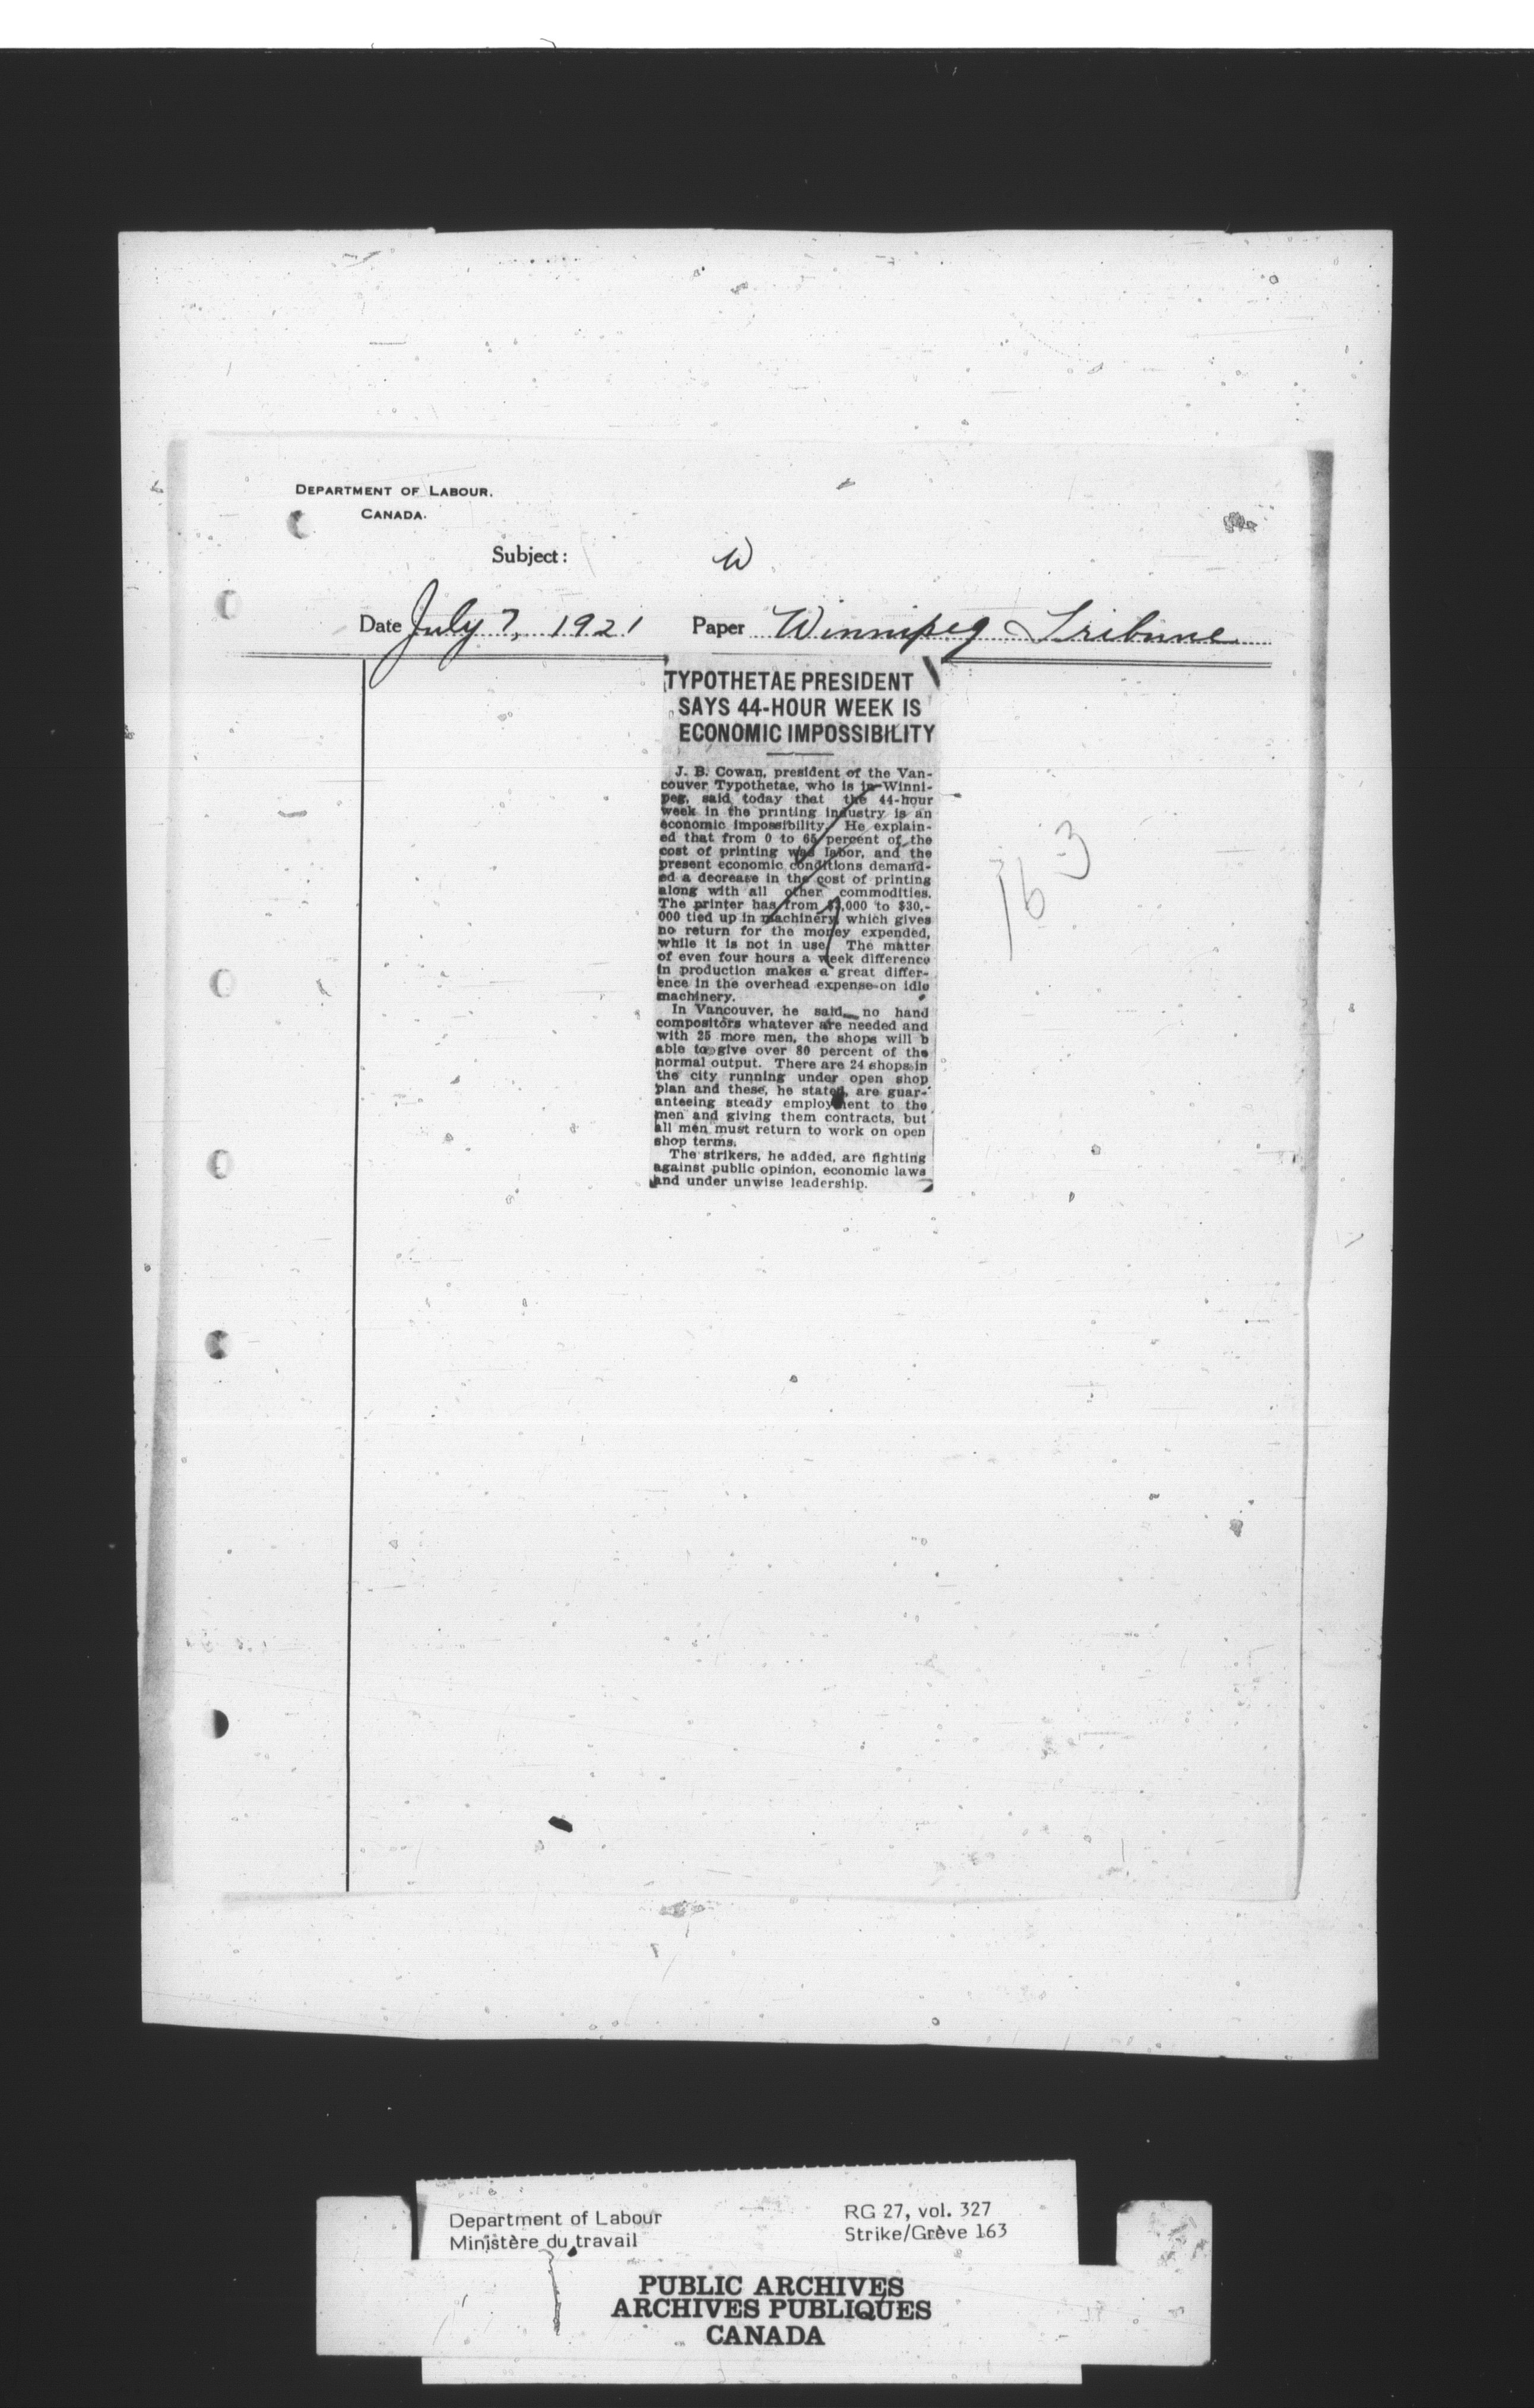 DEPARTMENT OF LABOUR.
CANADA.
Subject:
W
Date July 7, 1921 Paper Winnipeg Tribune
TYPOTHETAE PRESIDENT
SAYS 44-HOUR WEEK IS
ECONOMIC IMPOSSIBILITY
J. B. Cowan, president of the Van-
couver Typothetae, who is in Winni-
peg, said today that the 44-hour
week in the printing industry is an
economic impossibility. He explain-
ed that from 0 to 65 percent of the
cost of printing was labor, and the
present economic conditions demand-
ed a decrease in the cost of printing
along with all other commodities.
The printer has from ,000 to $30,-
000 tied up in machinery which gives
no return for the money expended,
while it is not in use. The matter
of even four hours a week difference
in production makes a great differ-
ence in the overhead expense on idle
machinery.
In Vancouver, he said, no hand
compositors whatever are needed and
with 25 more men, the shops will b
able to give over 80 percent of the
normal output. There are 24 shops in
the city running under open shop
plan and these, he stated, are guar-
anteeing steady employment to the
men and giving them contracts, but
all men must return to work on open
shop terms.
The strikers, he added, are fighting
against public opinion, economic laws
and under unwise leadership.
163
Department of Labour
Ministère du travail
RG 27, vol. 327
Strike/Grève 163
PUBLIC ARCHIVES
ARCHIVES PUBLIQUES
CANADA